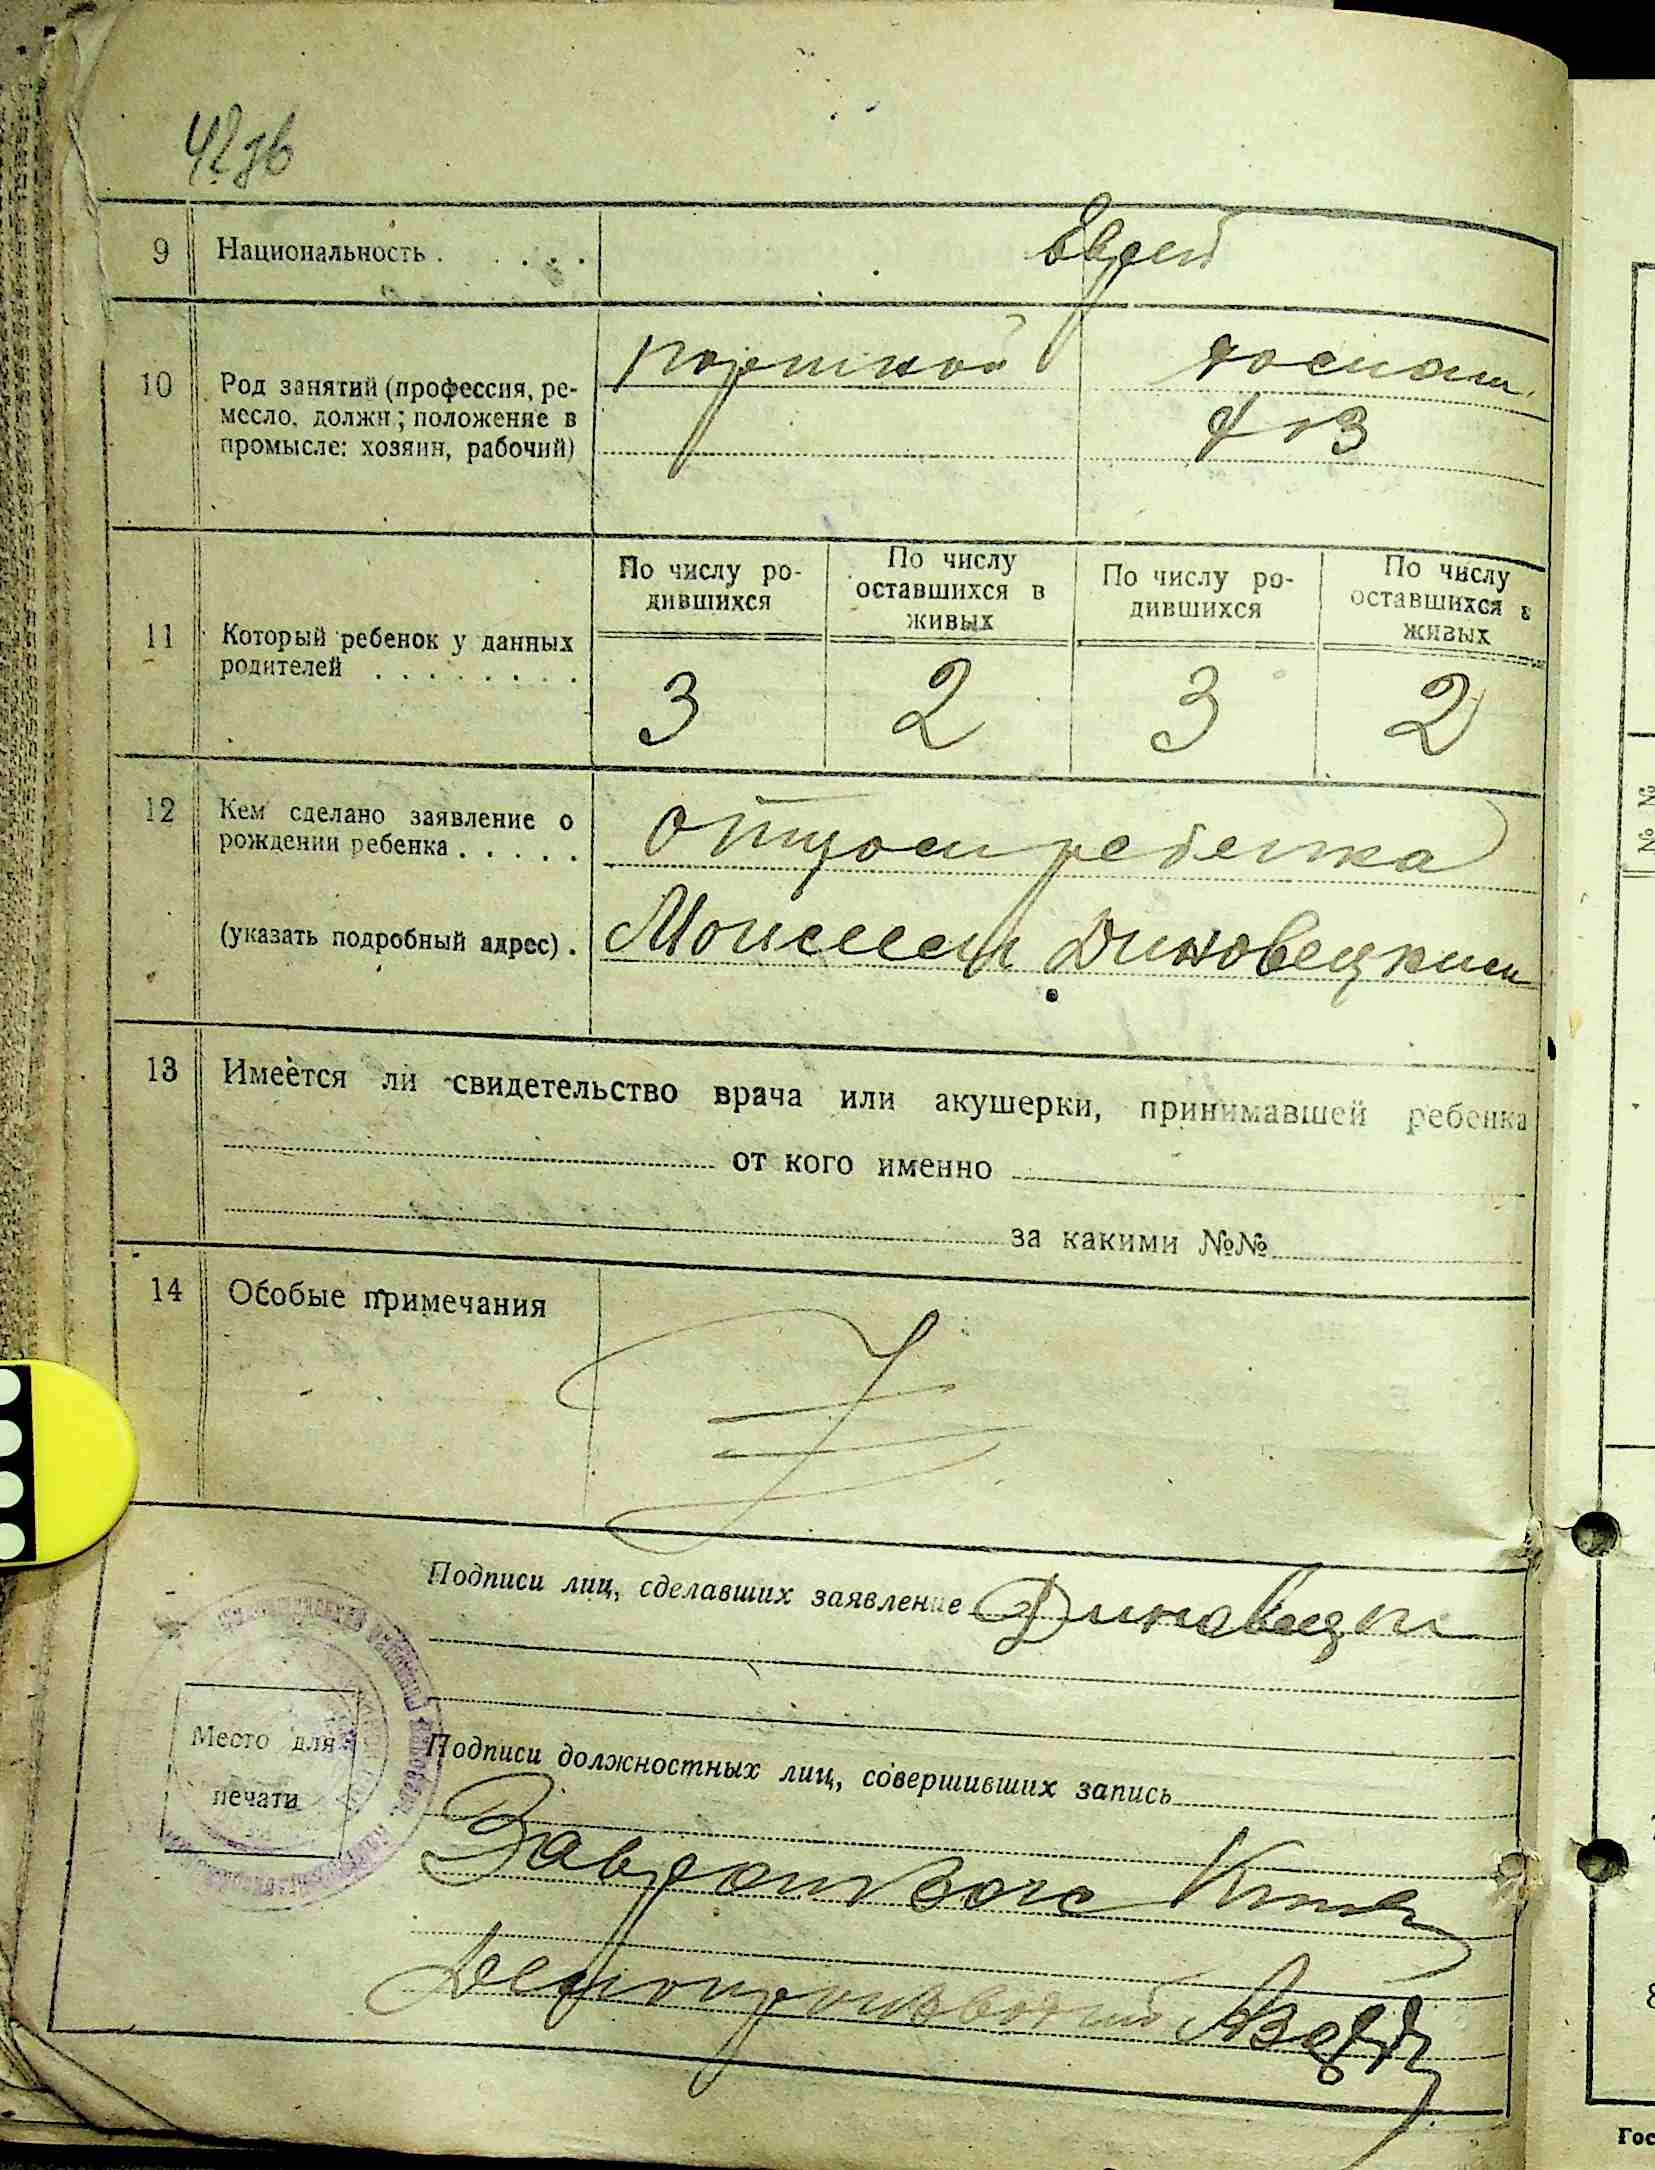 42зв
9 Национальность . . . . . Еврей
10 Род занятий (профессия, ре-
месло, должн; положение в
промысле: хозяин, рабочий)
портной
11 Который ребенок у данных
родителей . . . . . . . .
По числу ро-
дившихся
По числу
оставшихся в
живых
По числу ро-
дившихся
По числу
оставшихся в
живых
3 2 3 2
12 Кем сделано заявление о
рождении ребенка . . . . .
отцом ребенка
(указать подробный адрес) . Моисеем Диновецким
13 Имеется ли свидетельство врача или акушерки, принимавшей ребенка
от кого именно
за какими №№
14 Особые примечания
Подписи лиц, сделавших заявление Диновецки
Место для
печати
Подписи должностных лиц, совершивших запись
Делопроизводит
№ №
Гос